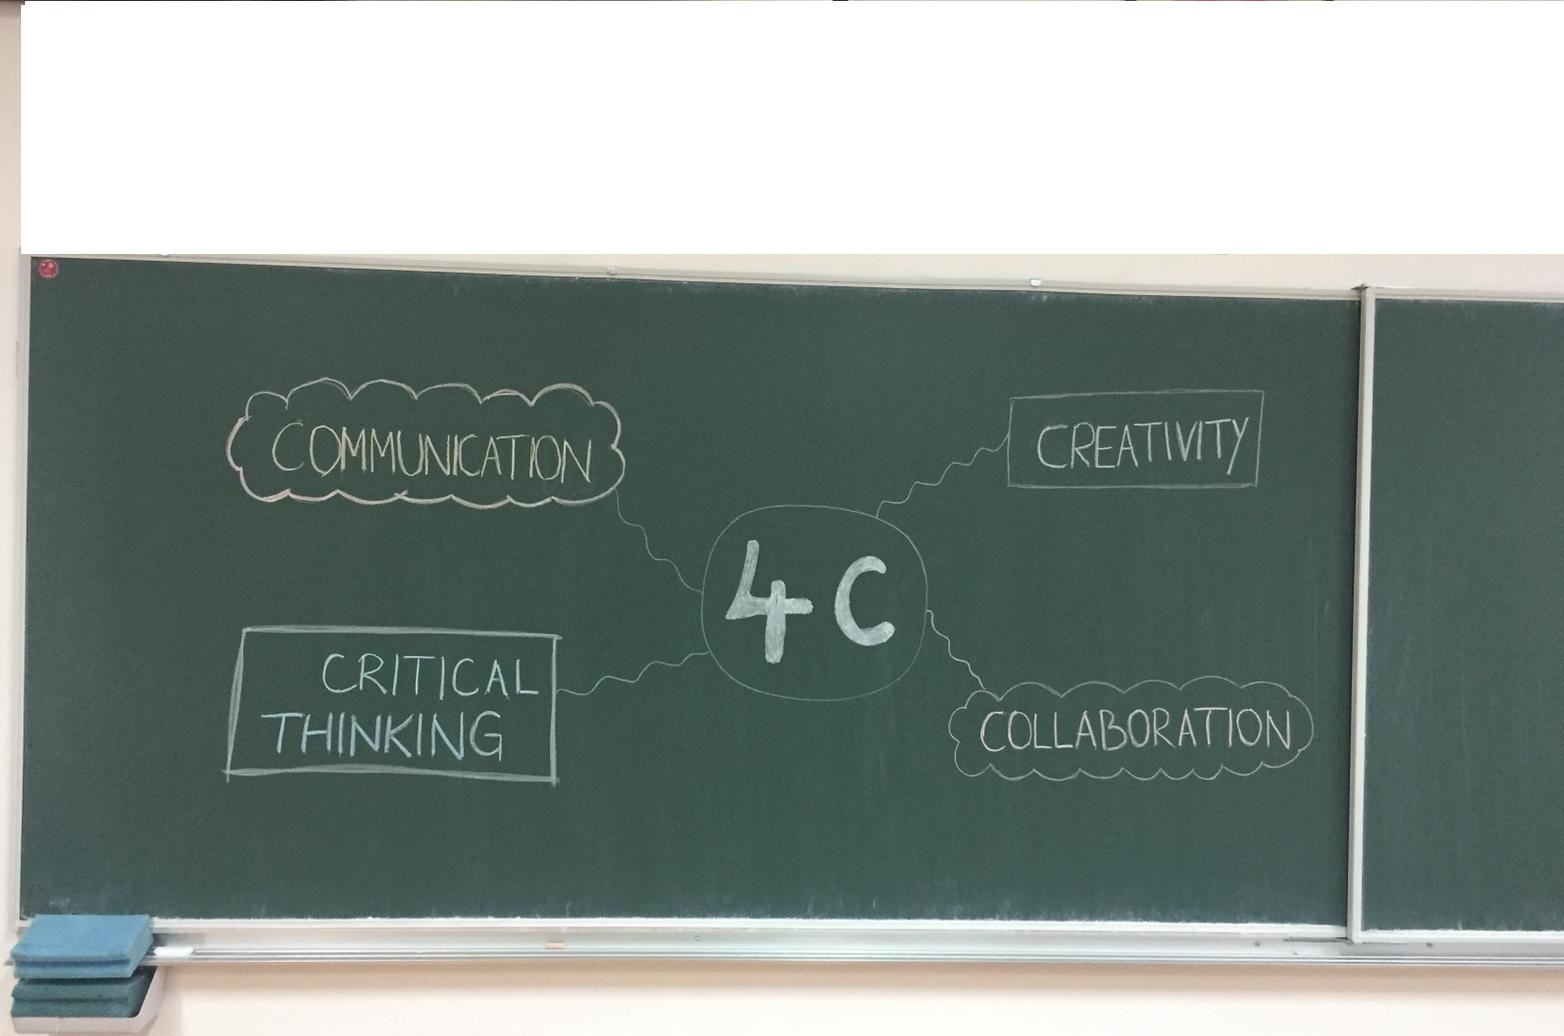 COMMUNICATION
CREATIVITY
4C
CRITICAL
THINKING
COLLABORATION